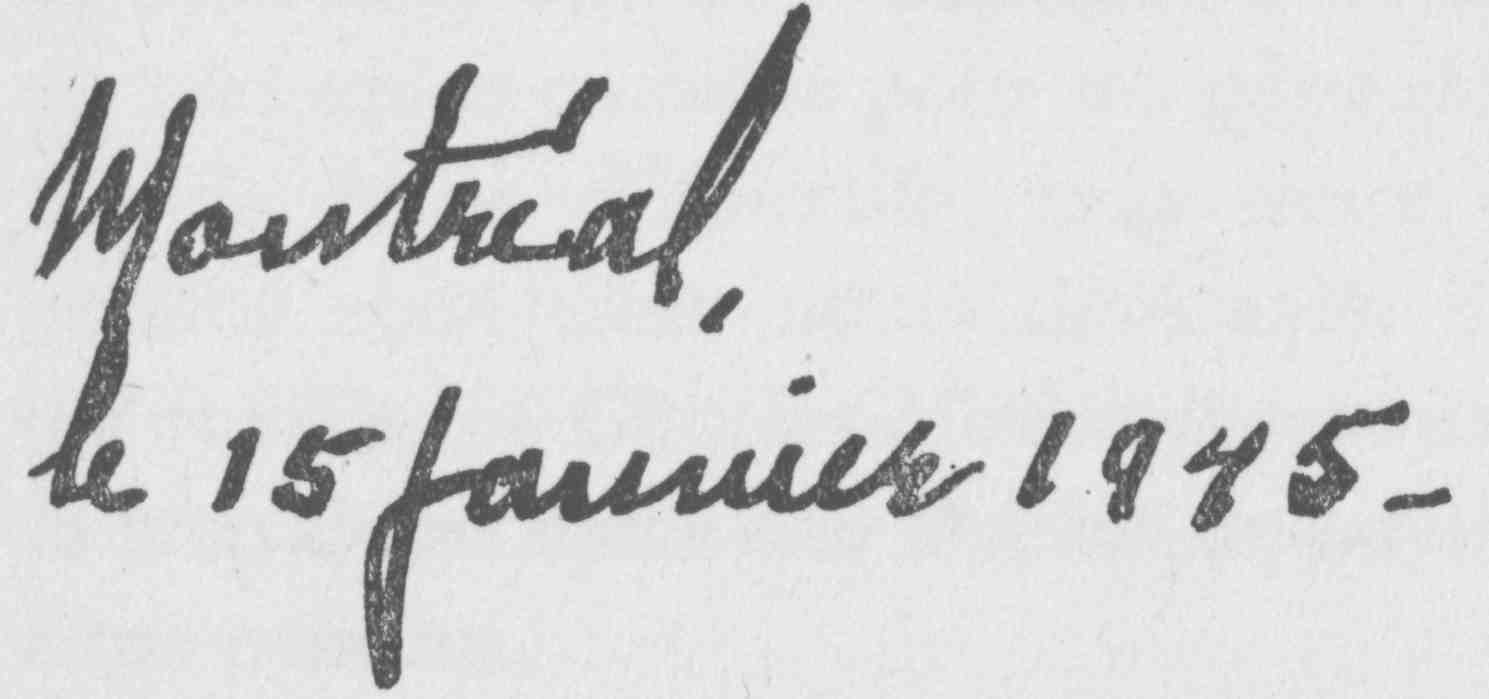 Montréal,
le 15 janvier 1945-